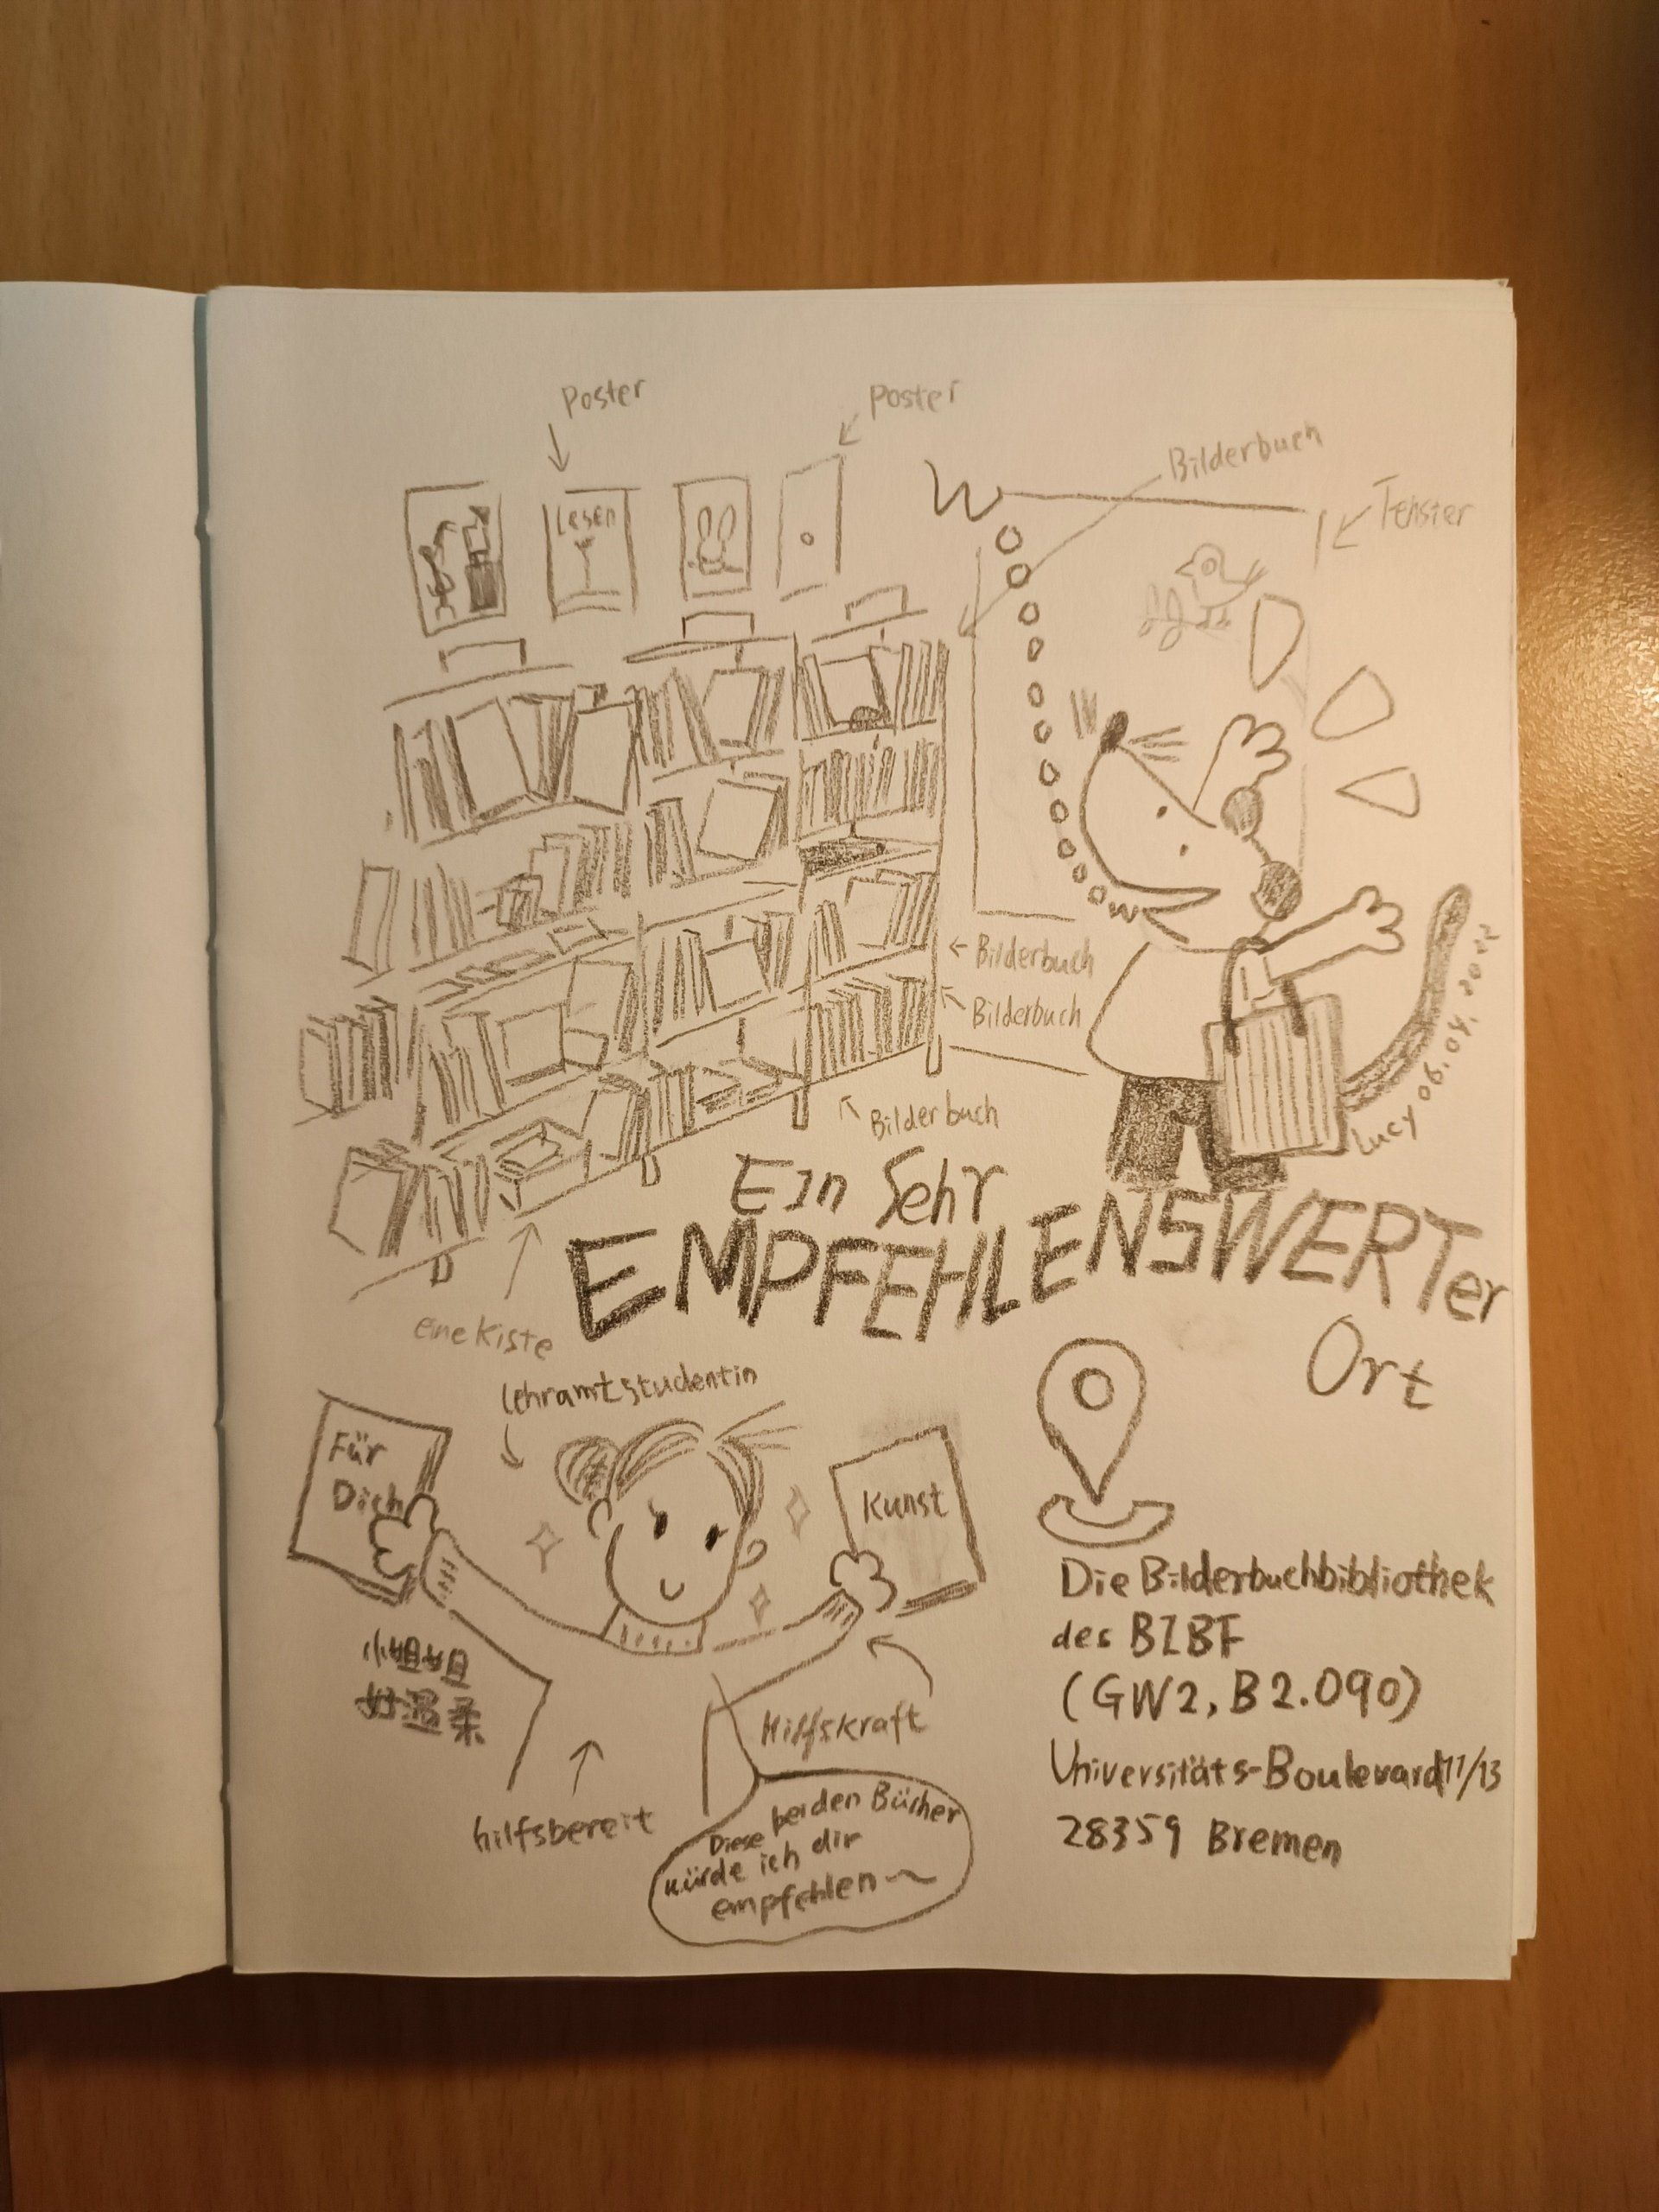 Poster
Poster
Bilderbuch
Fenster
Lesen
Wooooooooooooow
Bilderbuch
Bilderbuch
Bilderbuch
Lucy 06.04.2022
Ein Sehr
EMPFEHLENSWERTer
Ort
eine Kiste
Lehramtstudentin
Für
Dich
Kunst
小姐姐
好温柔
Hilfskraft
hilfsbereit
Diese beiden Bücher
würde ich dir
empfehlen~
Die Bilderbuchbibliothek
des BIBF
(GW2, B2.090)
Universitäts-Boulevard 11/13
28359 Bremen